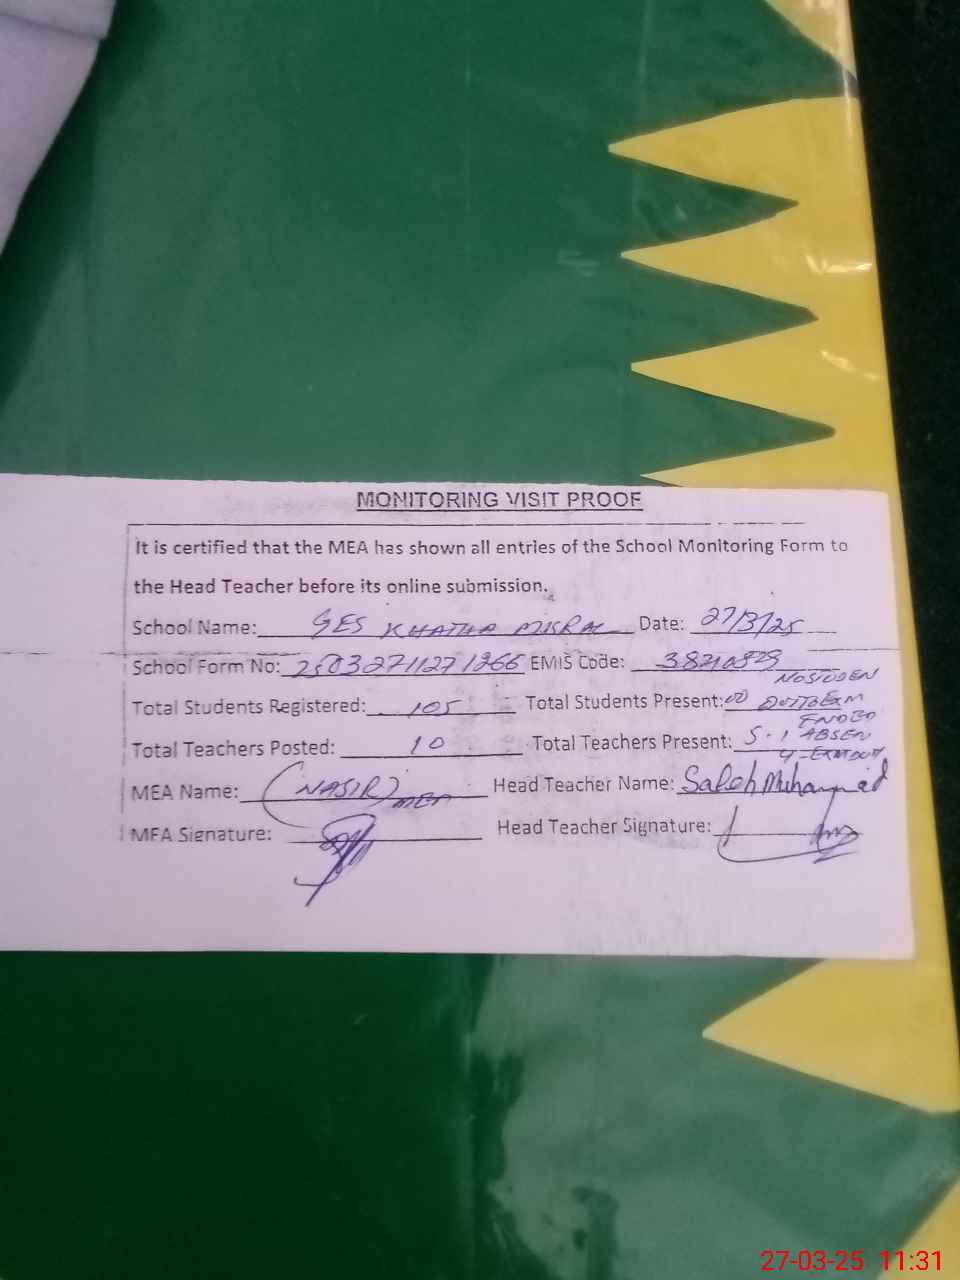 MONITORING VISIT PROOF
It is certified that the MEA has shown all entries of the School Monitoring Form to
the Head Teacher before its online submission.
School Name: GES KHATHA MISRAL Date: 27/3/25
School Form No: EMIS Code:
NO STUDEN
Total Students Registered: 105 Total Students Present: 00 DUE TO EXM
ENDED
Total Teachers Posted: 10 Total Teachers Present: 5 - 1 ABSEN
4-EXM DUTY
MEA Name: (NASIR) MEA Head Teacher Name: Saleh Muhammad
MEA Signature: Head Teacher Signature:
27-03-25 11:31